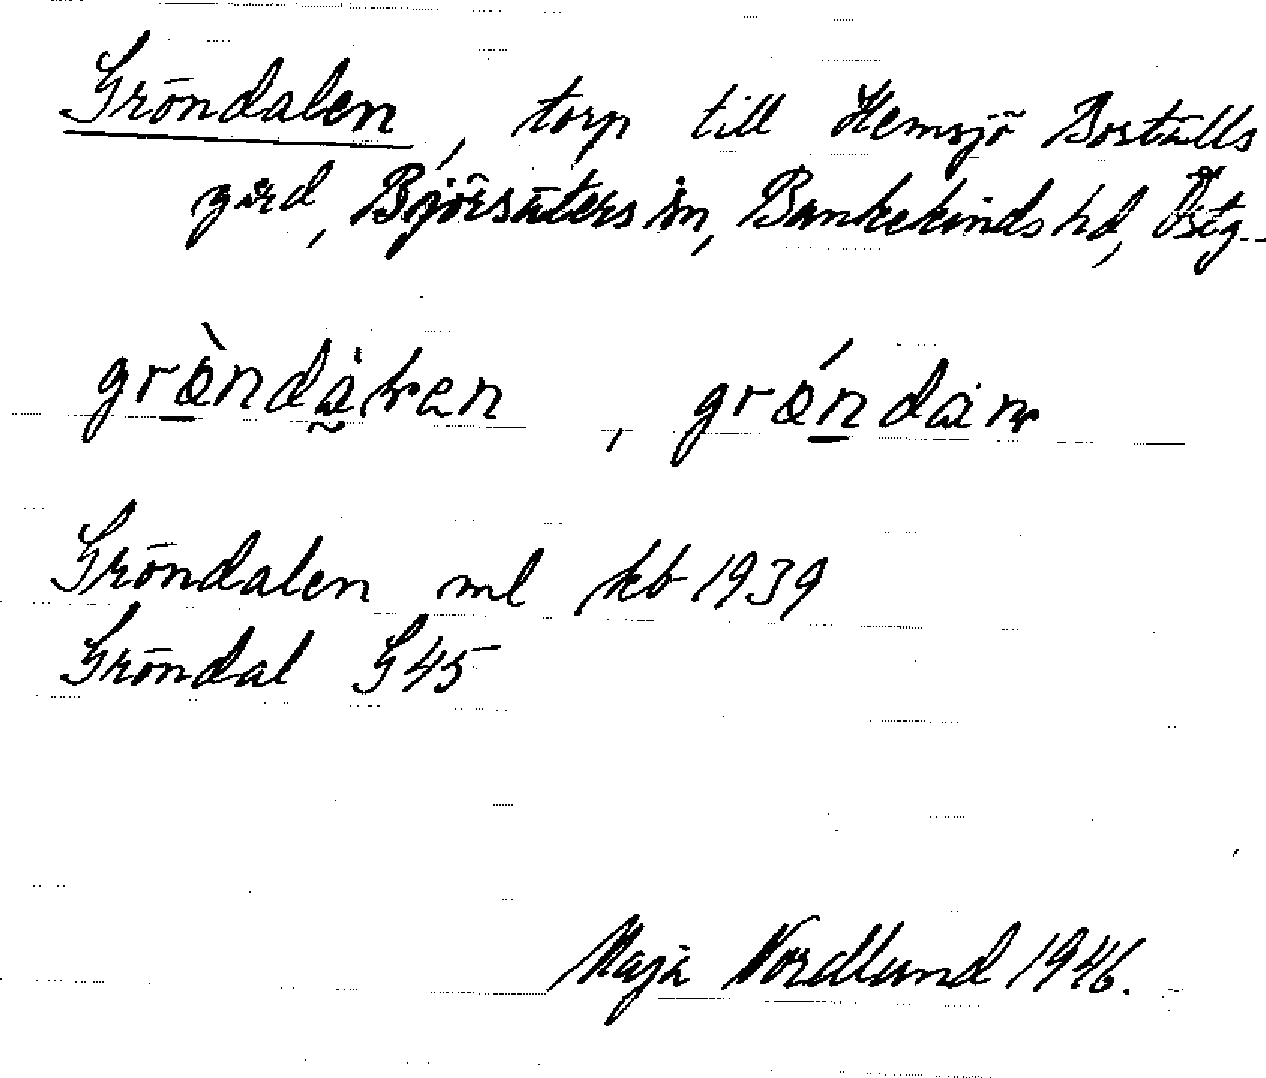 Gröndalen, torp till Hemsjö Boställs
gård, Björsäters sn, Bankekinds hd, Östg.
Gröndalen ml kb 1939
Gröndal G45
Maja Nordlund 1946.